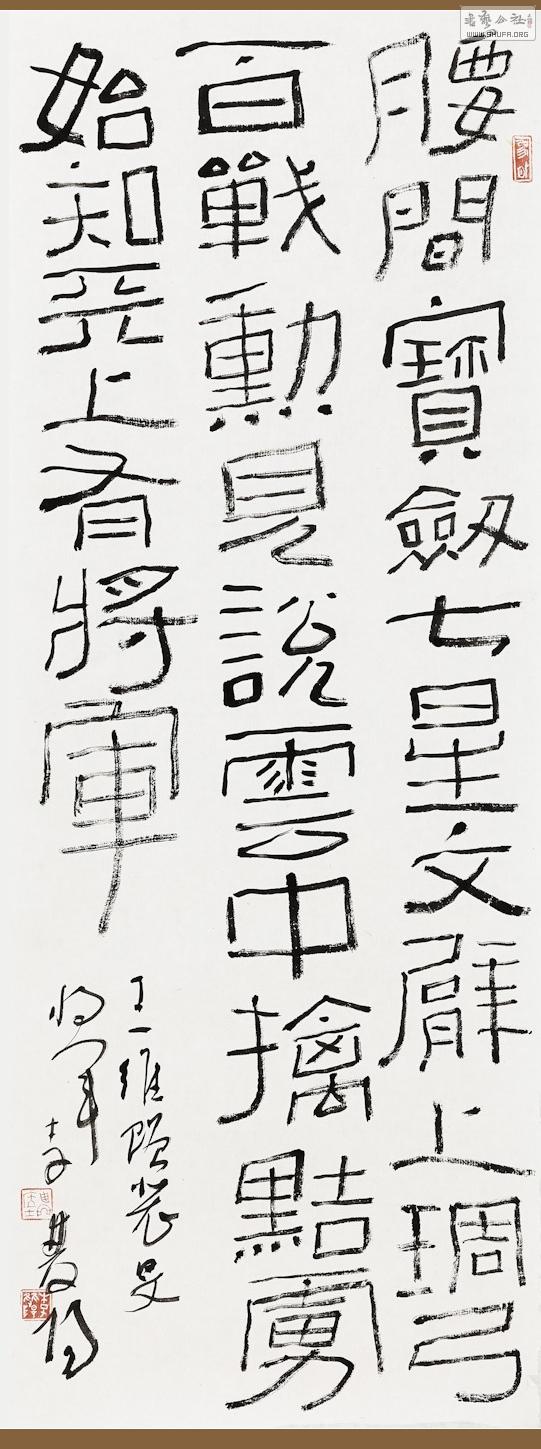 書藝公社
WWW.SHUFA.ORG
腰間寶劒七星文臂上琱弓
百戰勳見說雲中擒黠虜
始知天上有將軍
王維贈裴旻
將軍